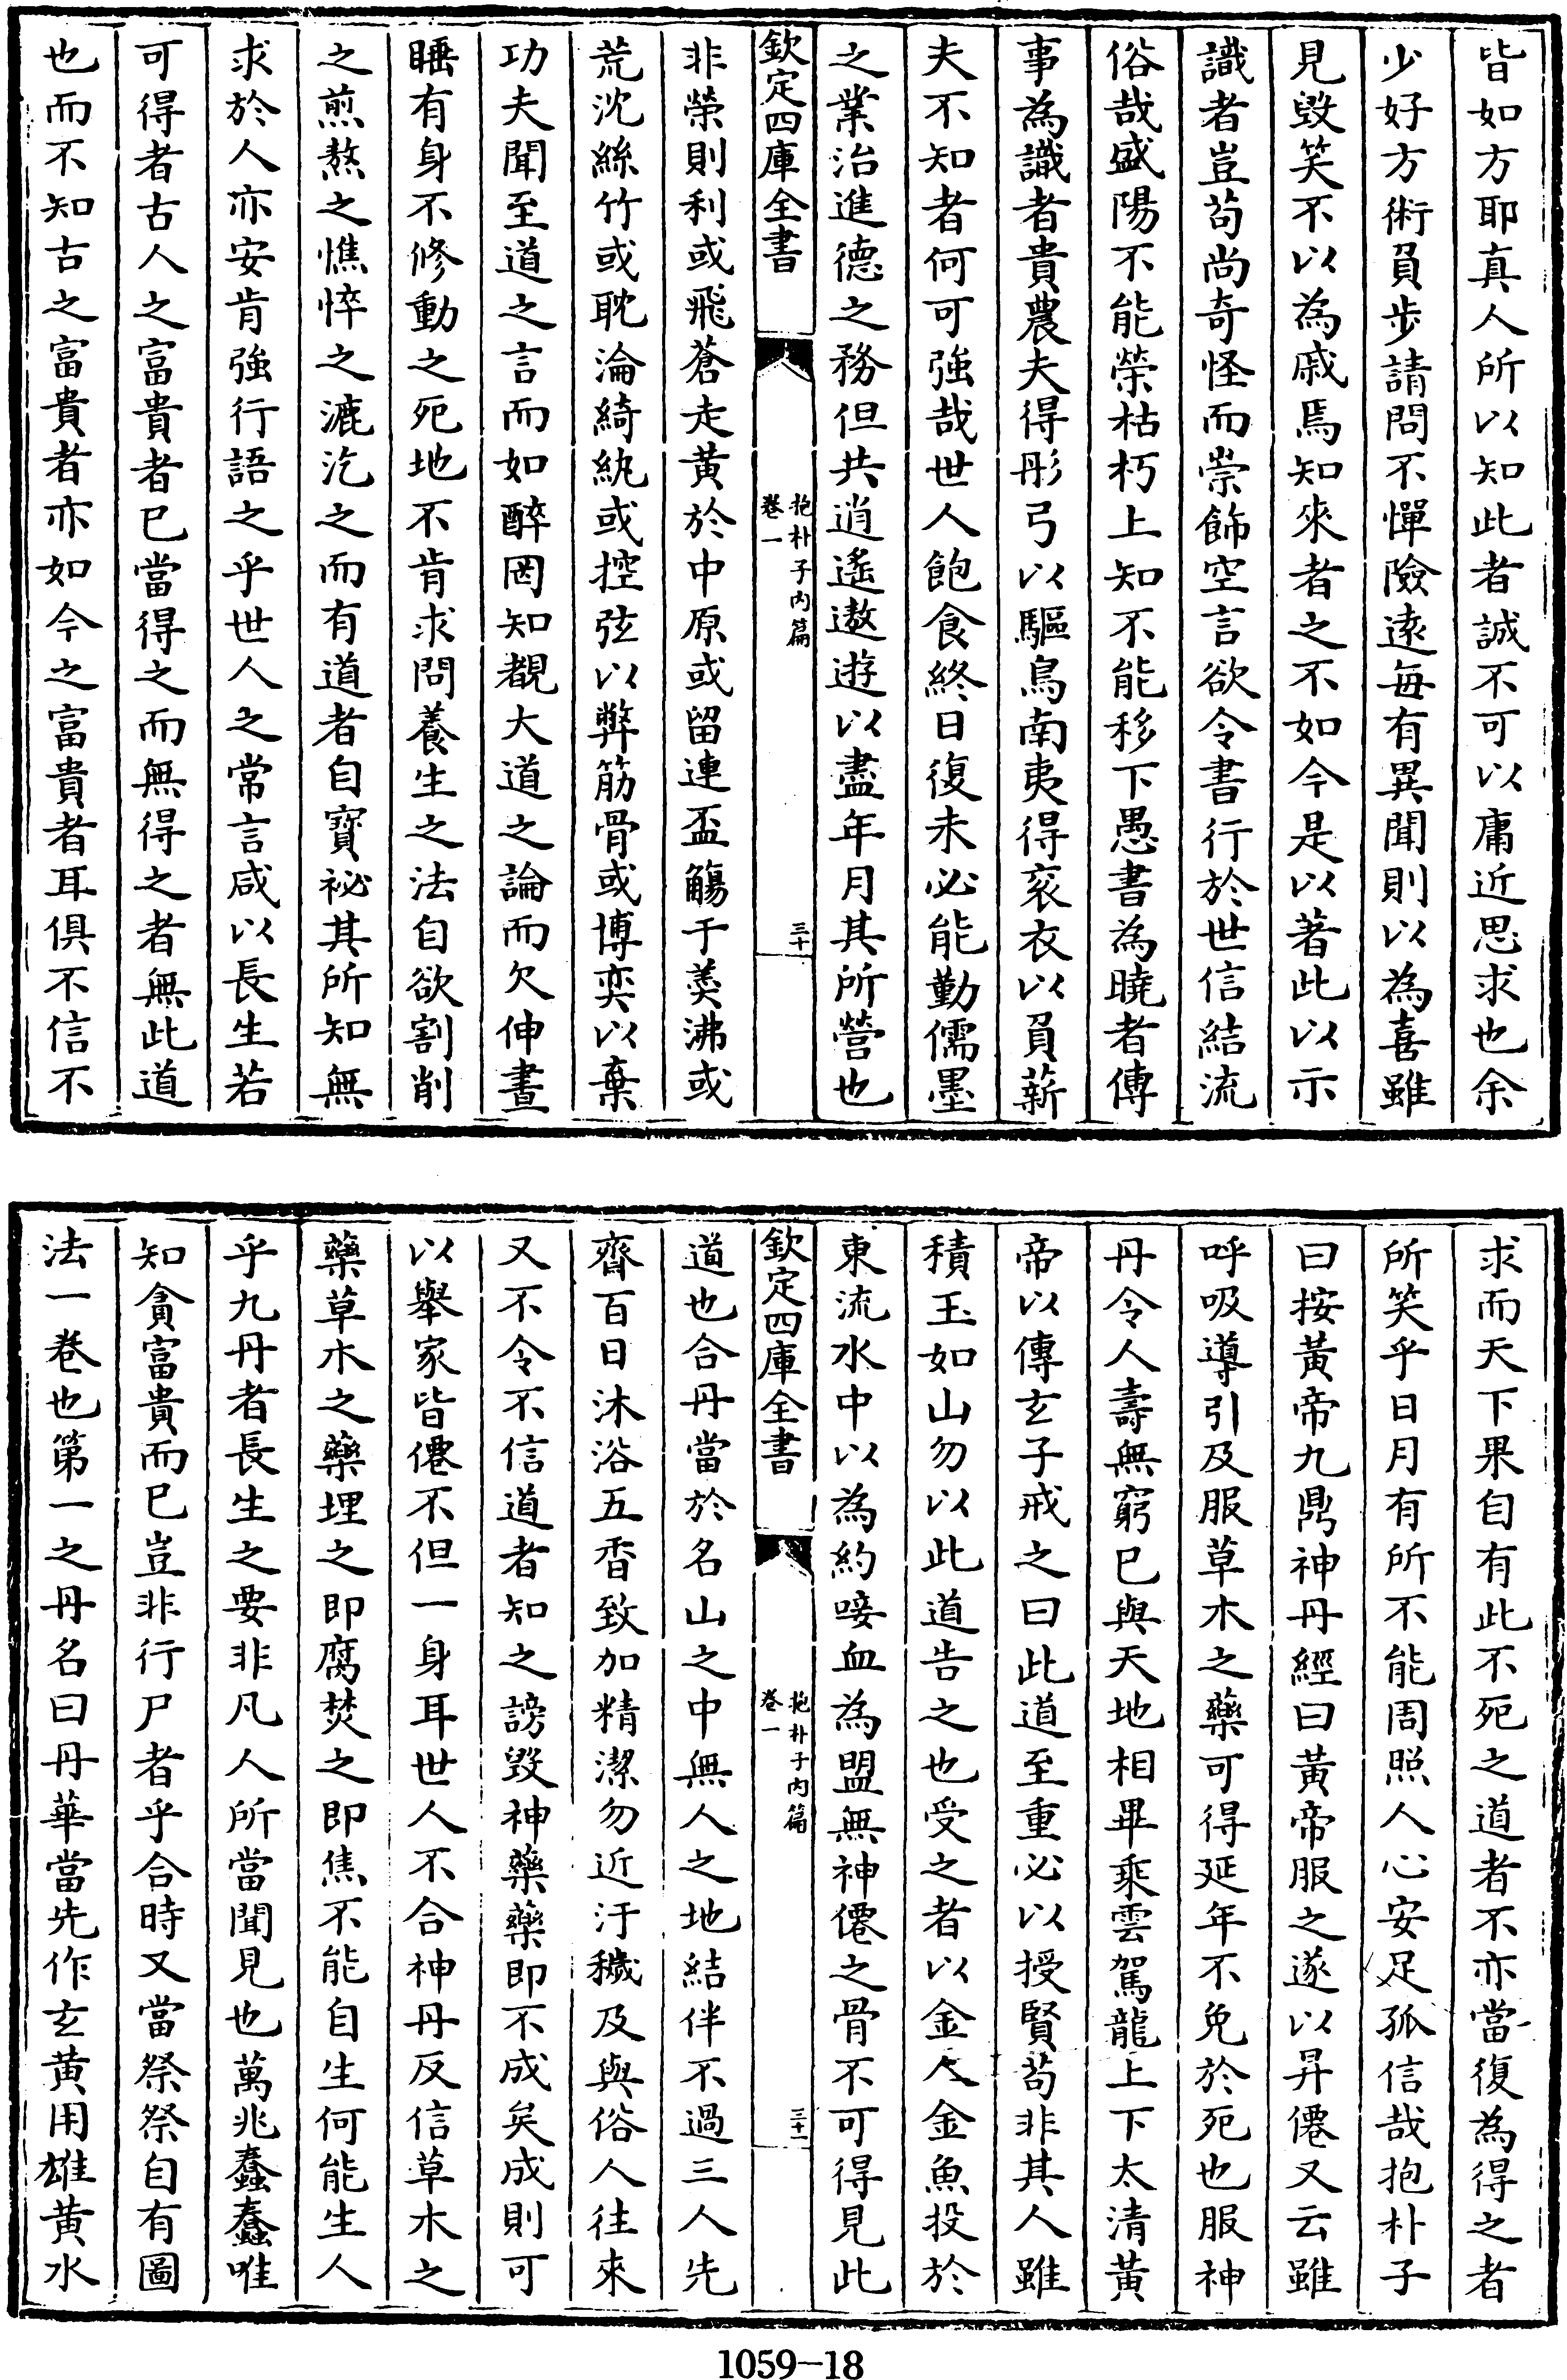 皆如方耶真人所以知此者誠不可以庸近思求也余
少好方術負步請問不憚險遠每有異聞則以為喜雖
見毀笑不以為戚焉知來者之不如今是以著此以示
識者豈苟尚奇怪而崇飾空言欲令書行於世信結流
俗哉盛陽不能榮枯朽上知不能移下愚書為曉者傳
事為識者貴農夫得彤弓以驅鳥南夷得衮衣以負薪
夫不知者何可強哉世人飽食終日復未必能勤儒墨
之業治進德之務但共逍遙遨遊以盡年月其所營也
欽定四庫全書
抱朴子內篇
卷一
三十
非榮則利或飛蒼走黃於中原或留連盃觴于羹沸或
荒沈絲竹或耽淪綺紈或控弦以弊筋骨或博奕以棄
功夫聞至道之言而如醉罔知覩大道之論而欠伸晝
睡有身不修動之死地不肯求問養生之法自欲割削
之煎熬之憔悴之漉汔之而有道者自寳祕其所知無
求於人亦安肯強行語之乎世人之常言咸以長生若
可得者古人之富貴者已當得之而無得之者無此道
也而不知古之富貴者亦如今之富貴者耳俱不信不
求而天下果自有此不死之道者不亦當復為得之者
所笑乎日月有所不能周照人心安足孤信哉抱朴子
曰按黃帝九鼎神丹經曰黃帝服之遂以昇僊又云雖
呼吸導引及服草木之藥可得延年不免於死也服神
丹令人壽無窮已與天地相畢乘雲駕龍上下太清黃
帝以傳玄子戒之曰此道至重必以授賢苟非其人雖
積玉如山勿以此道告之也受之者以金人金魚投於
東流水中以為約唼血為盟無神僊之骨不可得見此
欽定四庫全書
抱朴子內篇
卷一
三十一
道也合丹當於名山之中無人之地結伴不過三人先
齋百日沐浴五香致加精潔勿近汙穢及與俗人往來
又不令不信道者知之謗毀神藥藥即不成矣成則可
以舉家皆僊不但一身耳世人不合神丹反信草木之
藥草木之藥埋之即腐焚之即焦不能自生何能生人
乎九丹者長生之要非凡人所當聞見也萬兆蠢蠢唯
知貪富貴而已豈非行尸者乎合時又當祭祭自有圖
法一卷也第一之丹名曰丹華當先作玄黃用雄黃水
1059—18